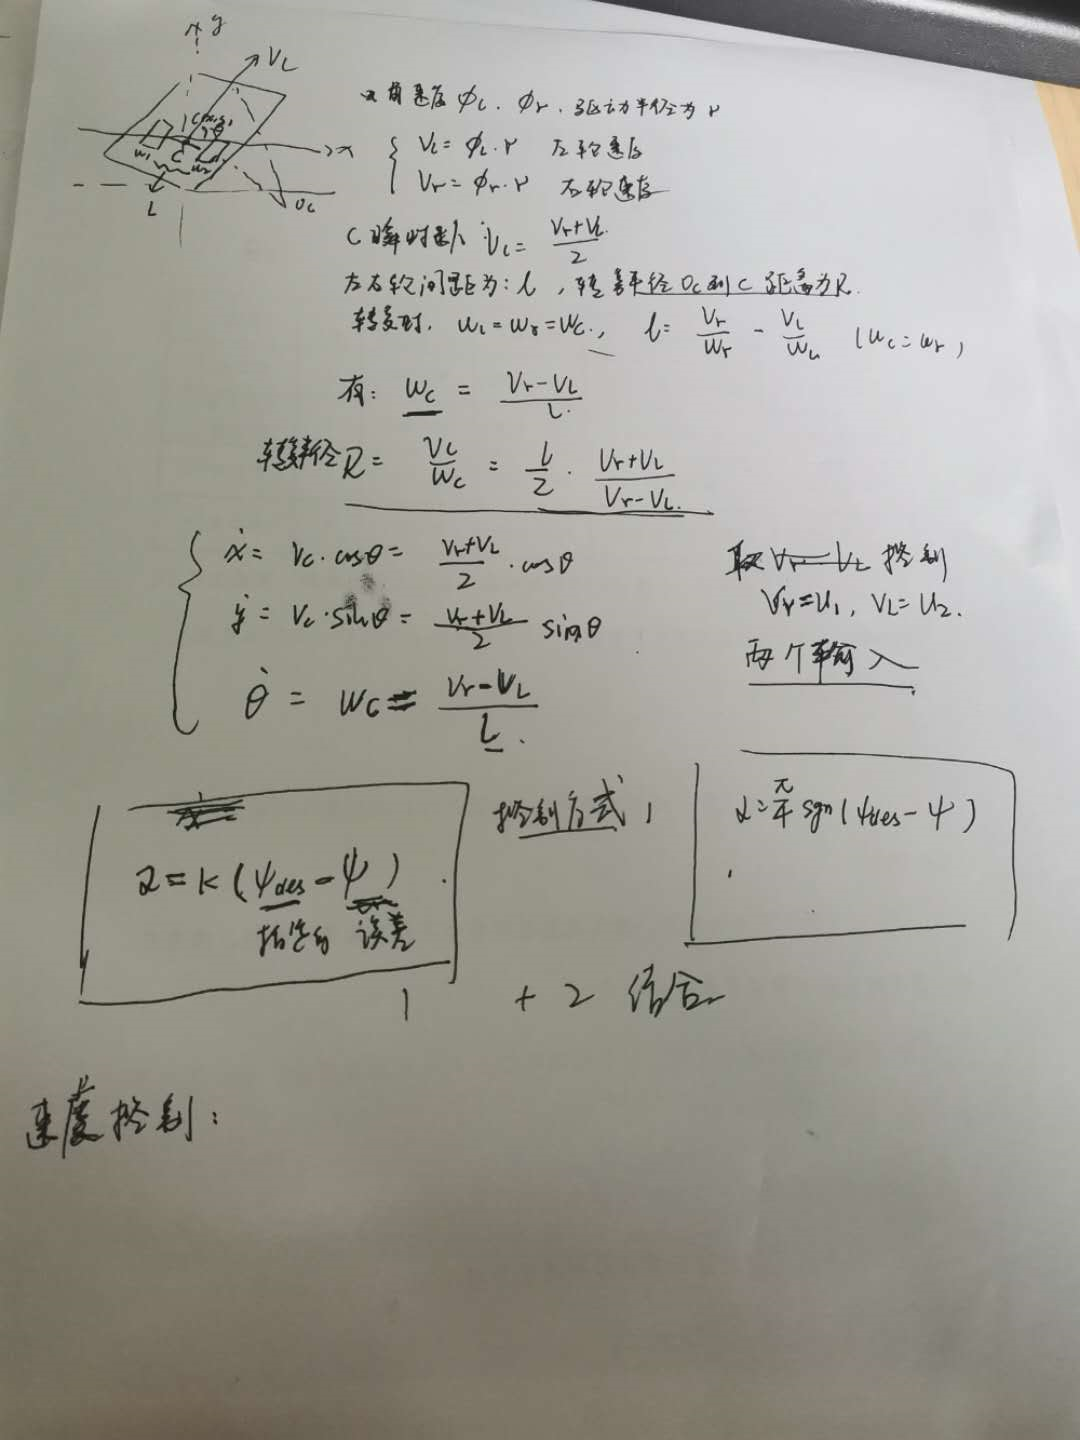 y
V_L
C(x,y)
θ
x
W₁ C W₂
L O_c
角速度 φ_L . φ_r . 驱动半径为 r
V_L = φ_L · r 左轮速度
V_r = φ_r · r 右轮速度
C 瞬时速度 V_c = (V_r+V_L)/2
左右轮间距为: l , 转弯半径 O_c 到 C 距离为 R.
转弯时, W_L = W_r = W_c , l = V_r/W_r - V_L/W_L (W_c = W_r)
有: W_c = (V_r-V_L)/L.
转弯半径 R = V_c/W_c = l/2 · (V_r+V_L)/(V_r-V_L)
ẋ = V_c · cosθ = (V_r+V_L)/2 · cosθ
ẏ = V_c · sinθ = (V_r+V_L)/2 sinθ
θ̇ = W_c = (V_r-V_L)/L.
取 V_r V_L 控制
V_r = U₁, V_L = U₂.
两个输入
α = k (ψdes - ψ)
误差
控制方式
α = π/4 sgn(ψdes - ψ)
1 + 2 结合
速度控制: